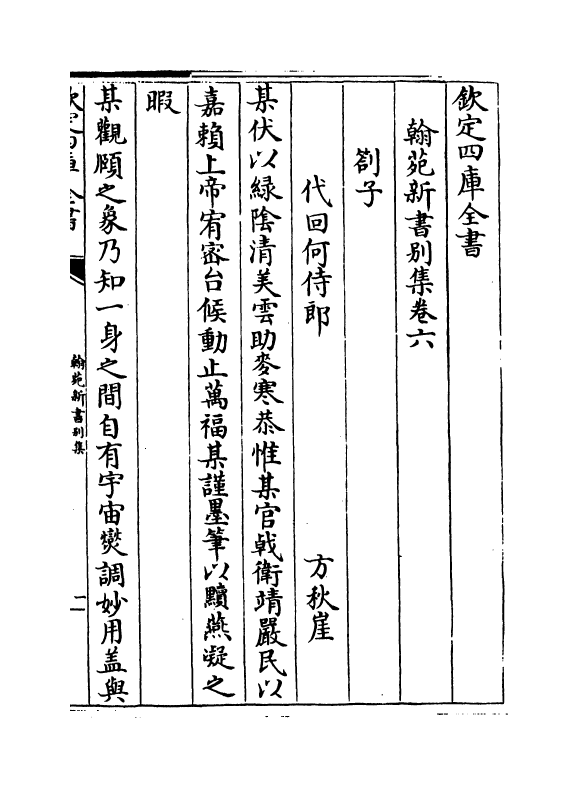 欽定四庫全書
翰苑新書别集卷六
劄子
代回何侍郎　方秋崖
某伏以緑陰清美雲助麥寒恭惟某官㦸衛靖嚴民以
嘉賴上帝宥密台候動止萬福某謹墨筆以黷燕凝之
暇
某觀頤之象乃知一身之間自有宇宙爕調妙用盖與
欽定四庫全書
翰苑新書别集
二